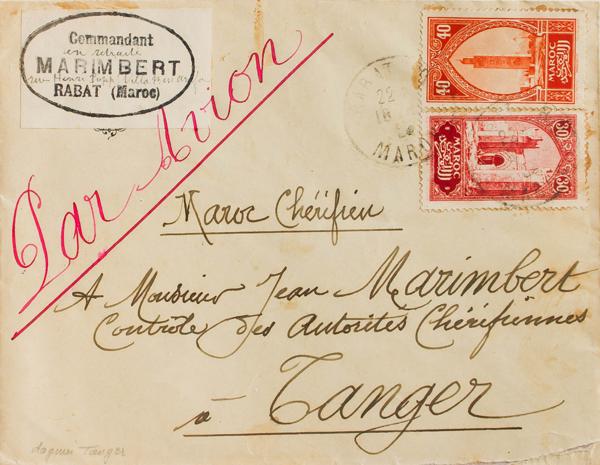 Commandant
en retraite
MARIMBERT
rue Henri Popp Villa
RABAT (Maroc)
40 40
MAROC
30 30
MAROC
RABAT
22
18
MAROC
Par Avion
Maroc Chérifien
A Monsieur Jean Marimbert
Contrôle des Autorités Chérifiennes
à Tanger
Tanger